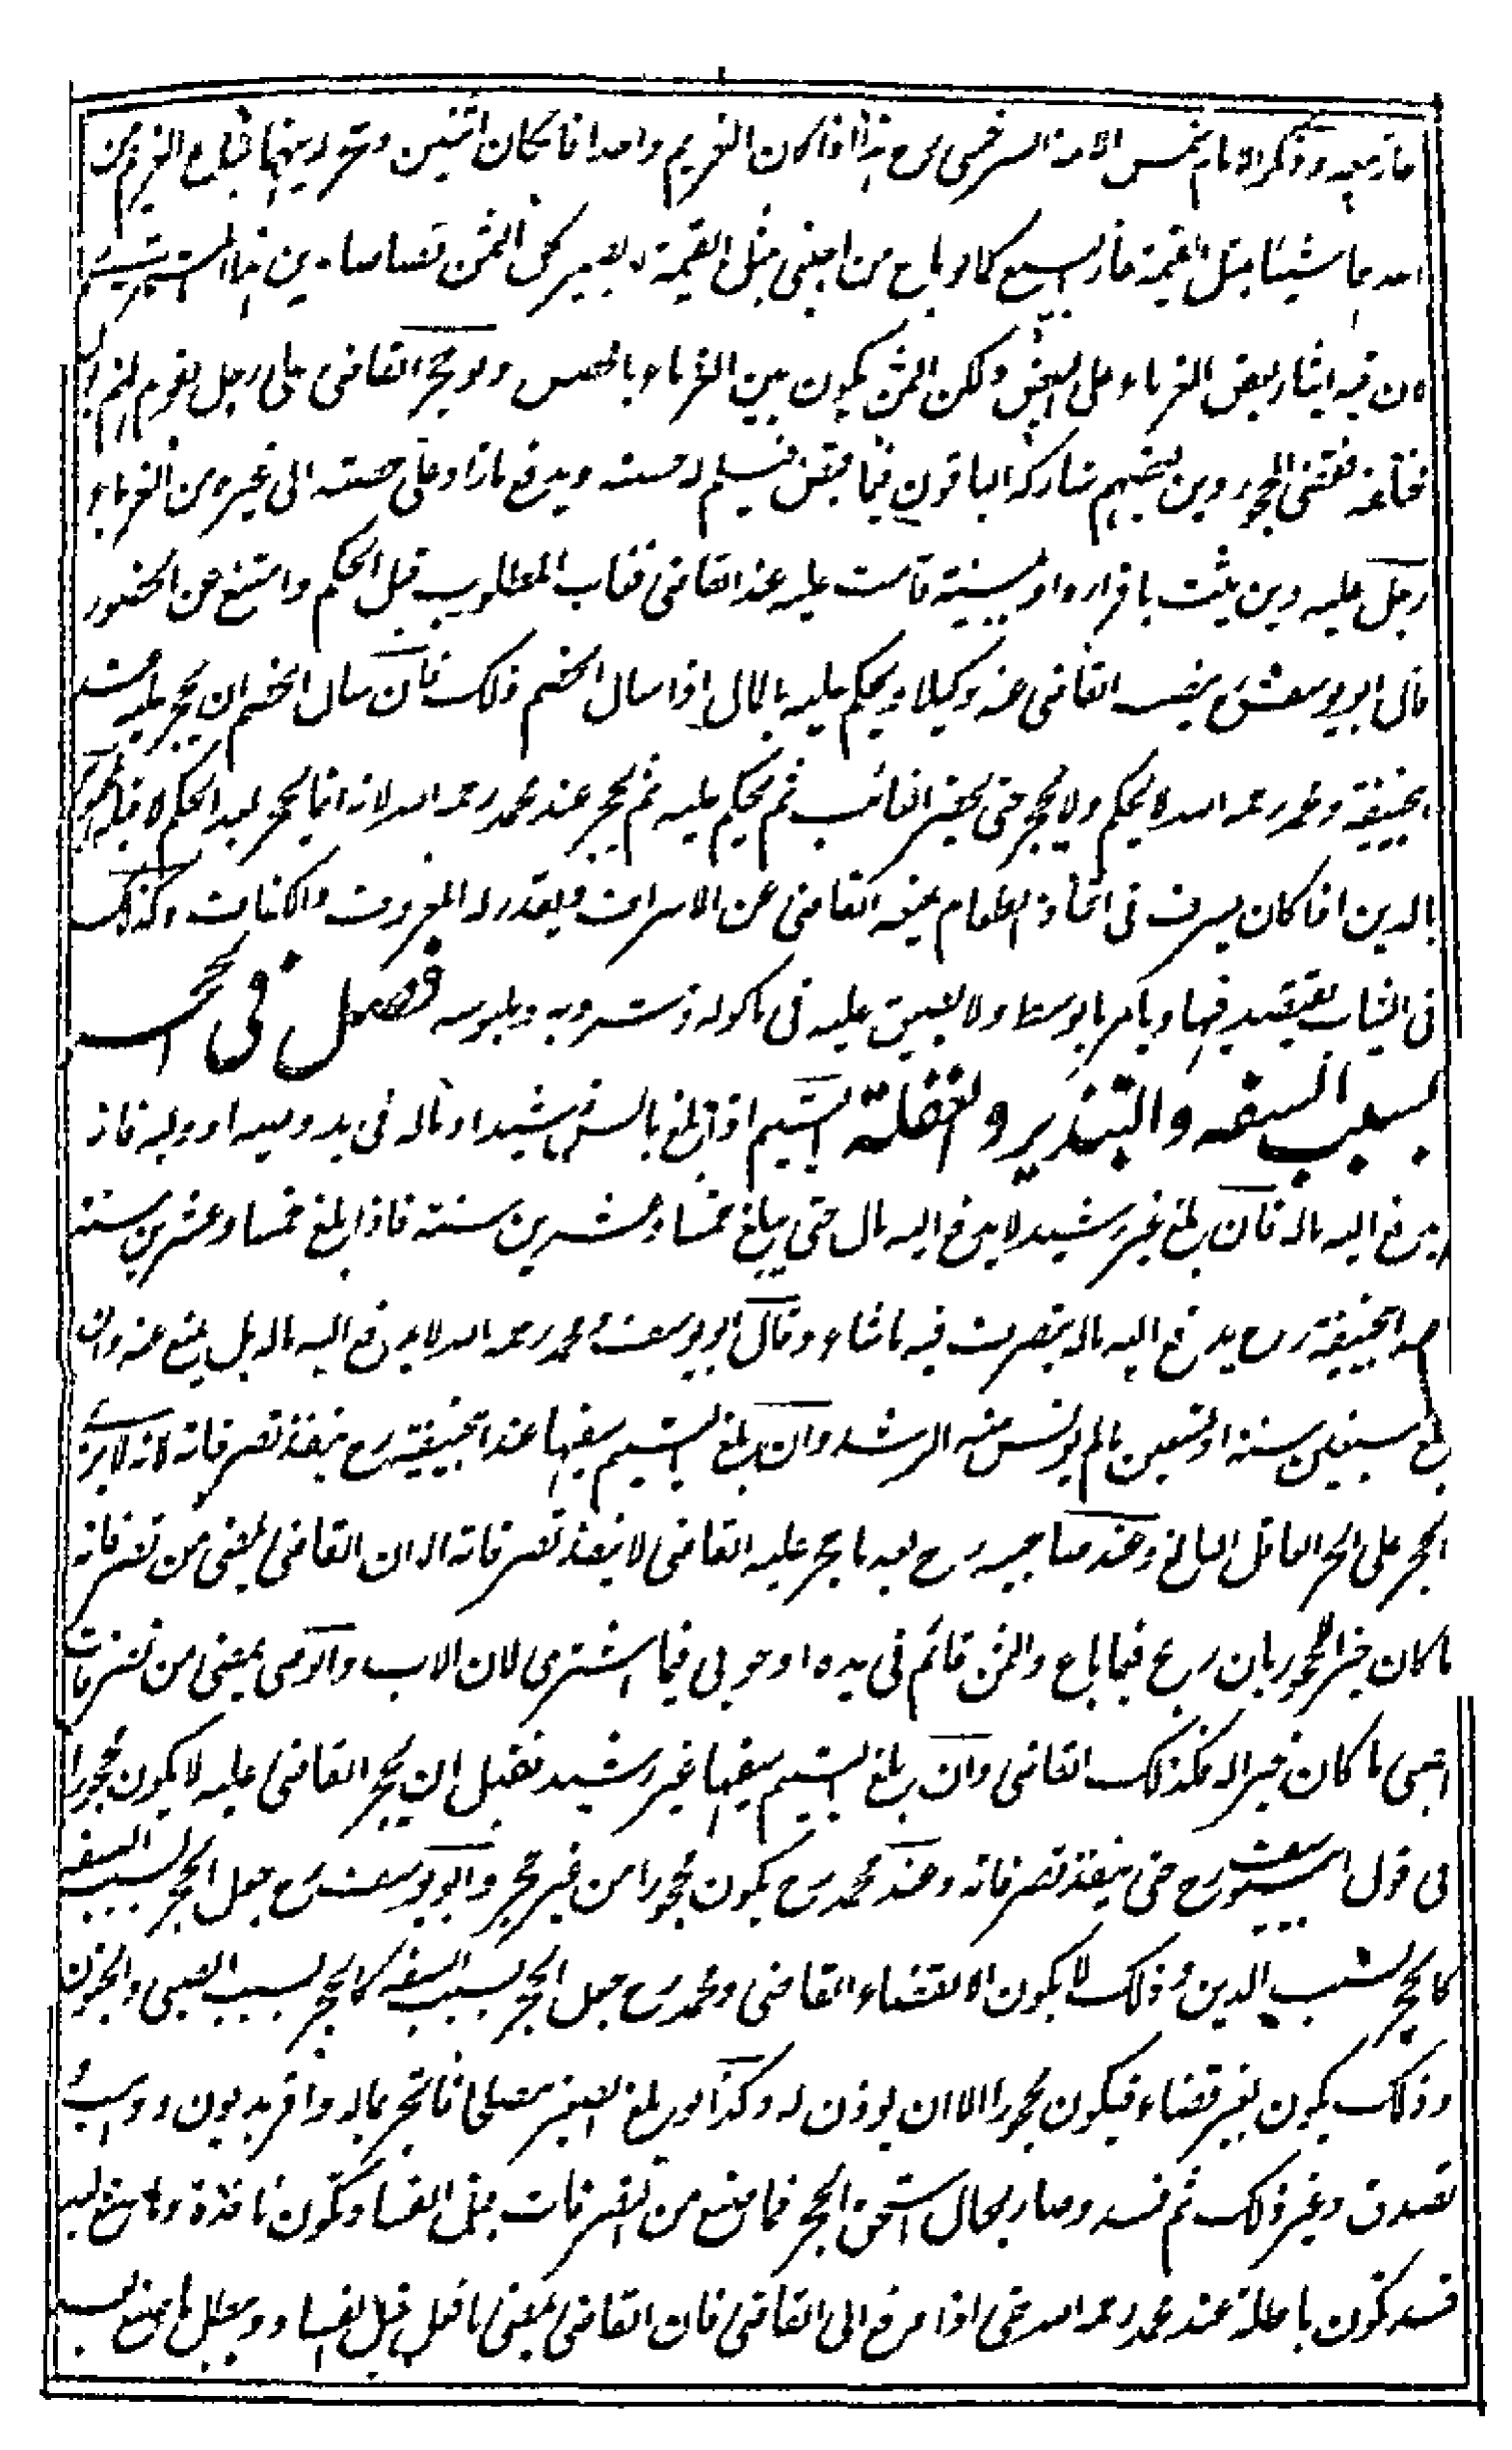 جاز بيعه وذكر الامام شمس الائمة السرخسي رح هذا اذا كان الغريم واحدا فان كان اثنين وحجر لدينهما فباع المحجور من
احدهما شيئا بمثل القيمة جاز البيع كما لو باع من اجنبي بمثل القيمة ولا يصير كل الثمن قصاصا بدين هذا المشتري
لان فيه ايثار بعض الغرماء على البعض ولكن الثمن يكون بين الغرماء بالحصص ولو حجر القاضي على رجل لقوم لهم ديون
مختلفة فقضى المحجور دين بعضهم شاركه الباقون فيما قبض فيسلم له حصته ويدفع ما زاد على حصته الى غيره من الغرماء
رجل عليه دين يثبت باقراره او ببينة قامت عليه عند القاضي فغاب المطلوب قبل الحكم وامتنع عن الحضور
قال ابو يوسف رح ينصب القاضي عنه وكيلا ويحكم عليه بالمال اذا سال الخصم ذلك فان سال الخصم ان يحجر عليه عند
ابي حنيفة ومحمد رحمه الله لا يحكم ولا يحجر حتى يحضر الغائب ثم يحكم عليه ثم يحجر عند محمد رحمه الله لانه انما يحجر بعد الحكم لا قبله المحجور
بالدين اذا كان يسرف في اتخاذ الطعام يمنعه القاضي عن الاسراف ويقدر له المعروف والكفاف وكذلك
في الثياب يقتصد فيها ويامر بالوسط ولا يضيق عليه في ماكوله ومشروبه وملبوسه فصل في الحجر
بسبب السفه والتبذير والغفلة اليتيم اذا بلغ بالسن رشيدا وماله في يد وصيه او وليه فانه
يدفع اليه ماله فان بلغ غير رشيد لا يدفع اليه المال حتى يبلغ خمسا وعشرين سنة فاذا بلغ خمسا وعشرين سنة
عند ابي حنيفة رح يدفع اليه ماله يتصرف فيه ما شاء وقال ابو يوسف ومحمد رحمه الله لا يدفع اليه ماله بل يمنع عنه وان
بلغ سبعين سنة او تسعين ما لم يونس منه الرشد وان بلغ اليتيم سفيها عند ابي حنيفة رح ينفذ تصرفاته لانه لا يرى
الحجر على الحر العاقل البالغ وعند صاحبيه رح بعد ما حجر عليه القاضي لا ينفذ تصرفاته الا ان القاضي يمضي من تصرفاته
ما كان خيرا للمحجور بان ربح فيما باع والثمن قائم في يده او حوبي فيما اشترى لان الاب والوصي يمضي من تصرفات
الصبي ما كان خيرا له فكذلك القاضي وان بلغ اليتيم سفيها غير رشيد فقبل ان يحجر القاضي عليه لا يكون محجورا
في قول ابي يوسف رح حتى ينفذ تصرفاته وعند محمد رح يكون محجورا من غير حجر وابو يوسف رح جعل الحجر بسبب السفه
كالحجر بسبب الدين وذلك لا يكون الا بقضاء القاضي ومحمد رح جعل الحجر بسبب السفه كالحجر بسبب الصبي والجنون
وذلك يكون بغير قضاء فيكون محجورا الا ان يوذن له وكذا لو بلغ الصغير مصلحا فاتجر بماله واقر بديون ووهب و
تصدق وغير ذلك ثم فسد وصار بحال استحق الحجر فما صنع من التصرفات قبل الفساد تكون نافذة وما صنع بعد ما
فسد تكون باطلة عند محمد رحمه الله حتى اذا رفع الى القاضي فان القاضي يمضي ما فعل قبل الفساد ويبطل ما صنع بعد